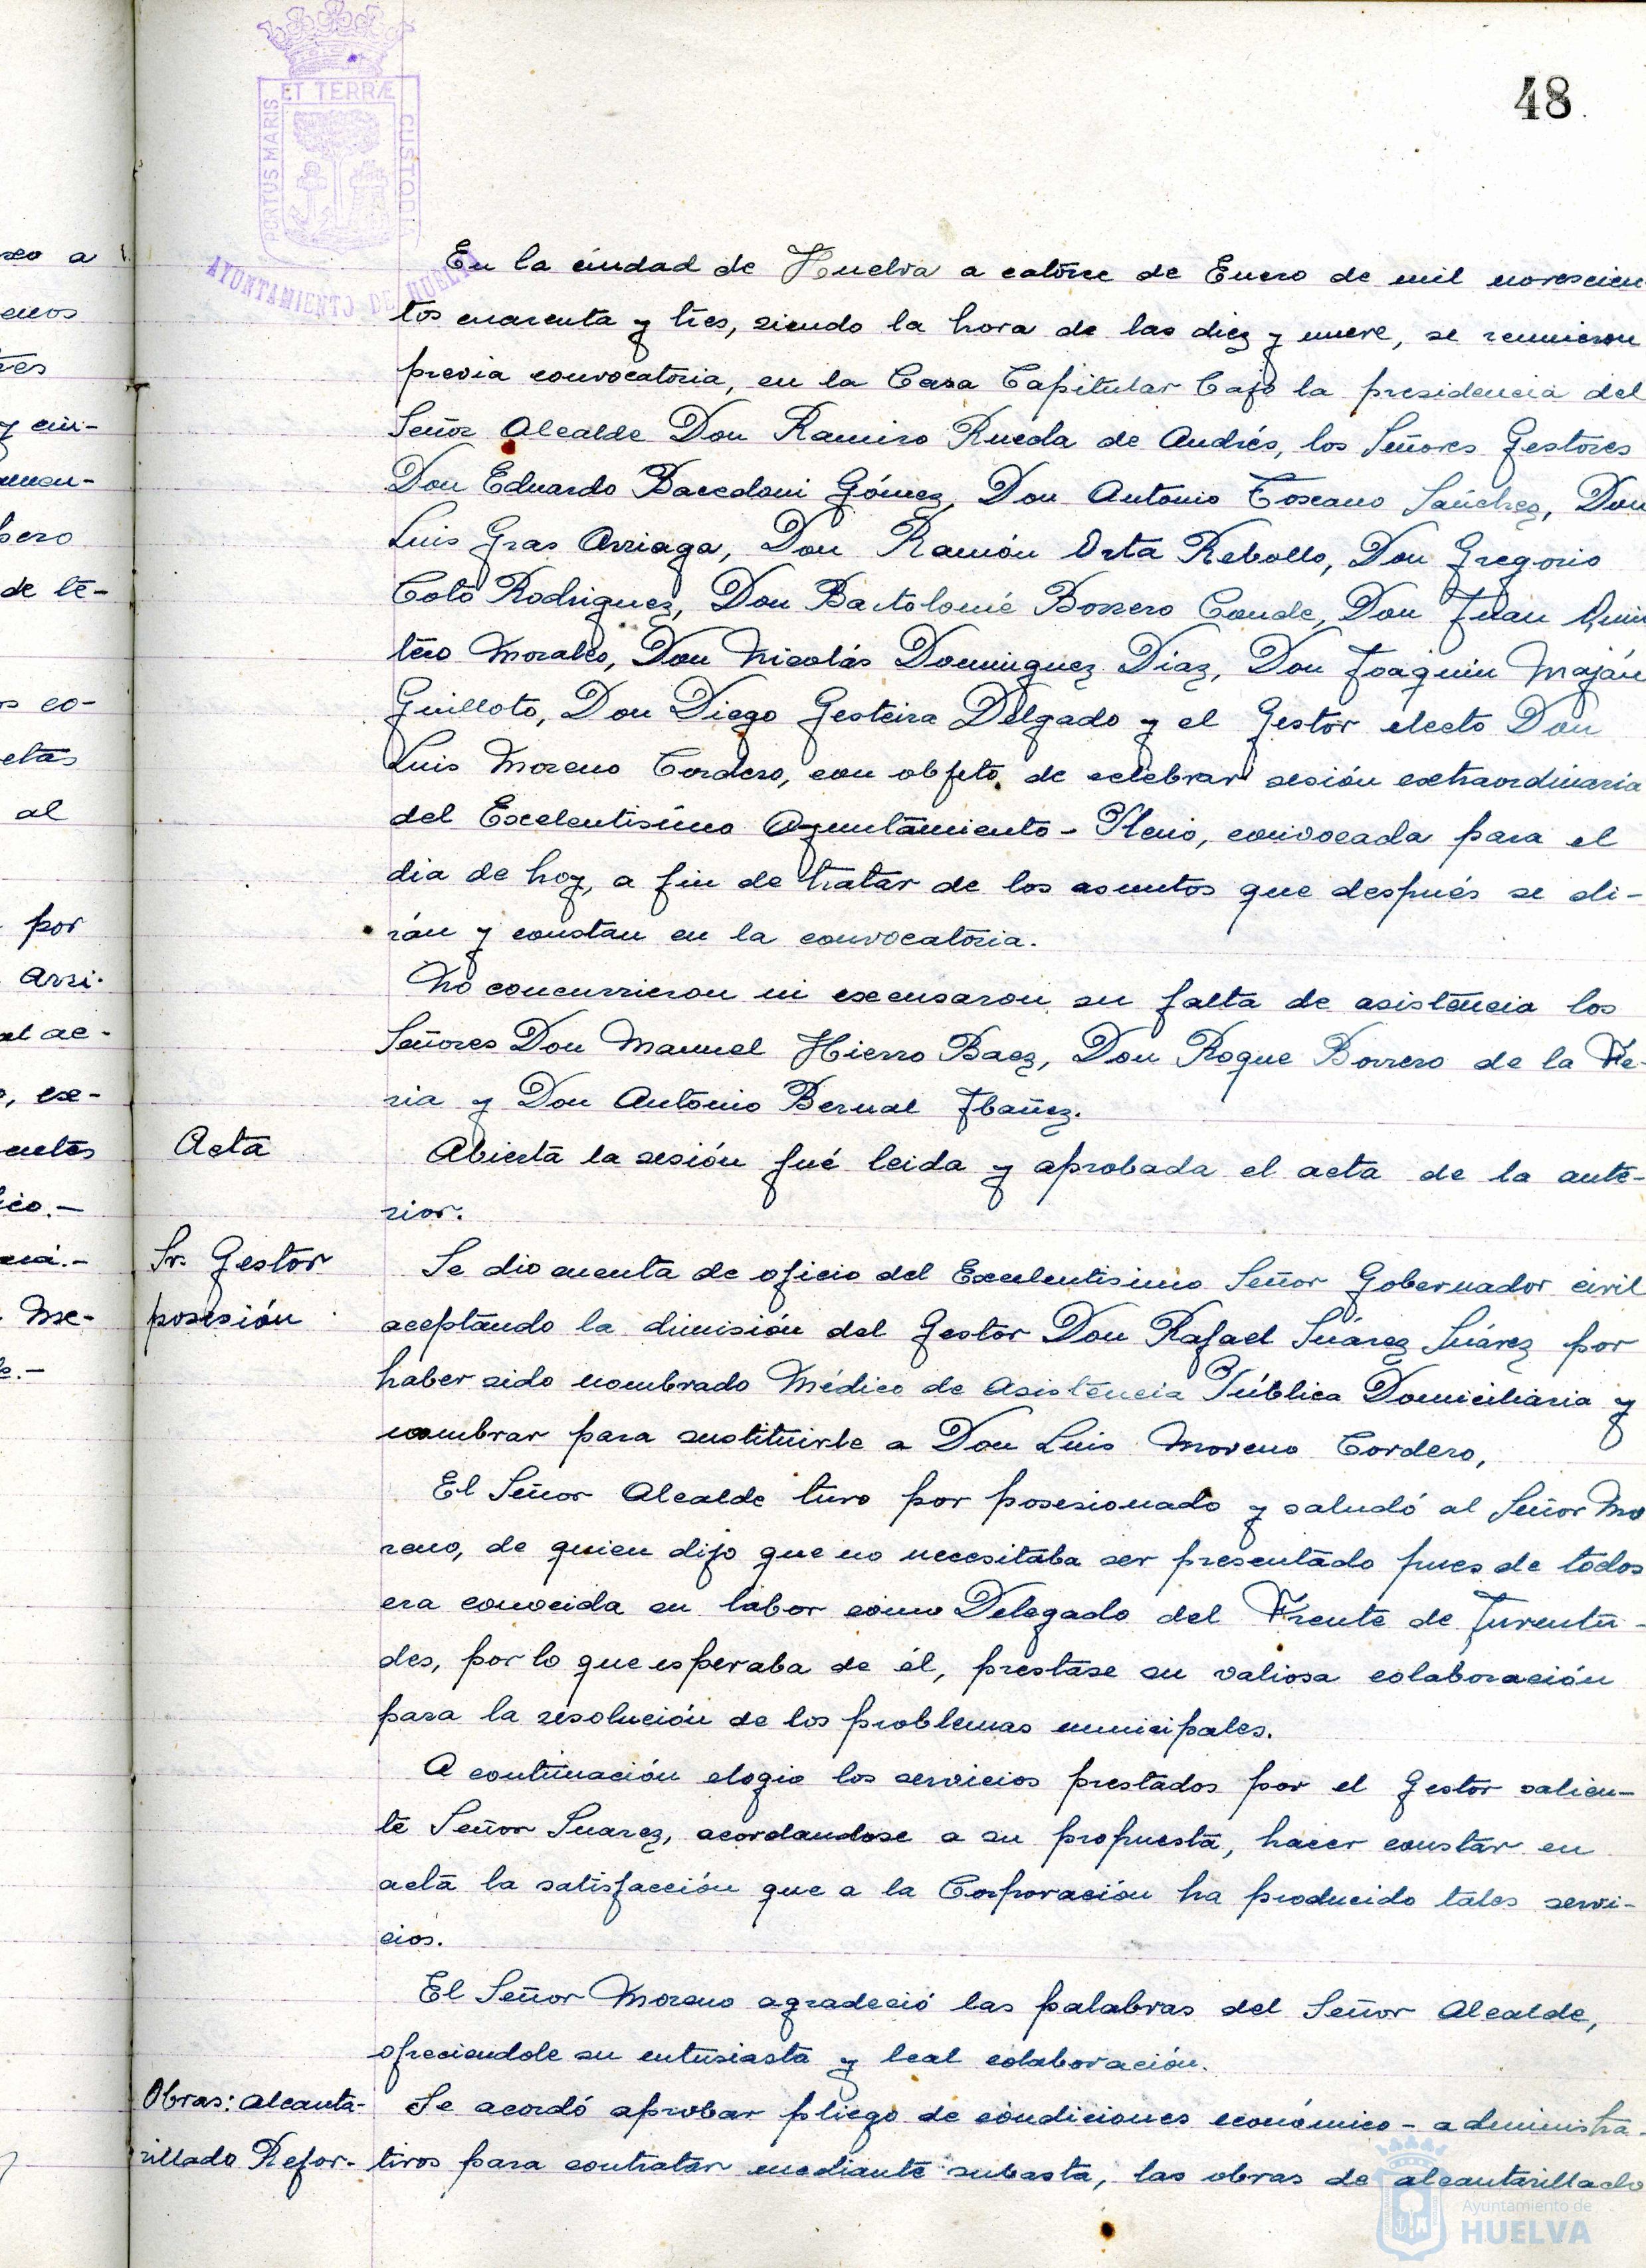 48.
ET TERRÆ
PORTUS MARIS
CUSTODIA
AYUNTAMIENTO DE HUELVA
En la ciudad de Huelva a catorce de Enero de mil novescien-
tos cuarenta y tres, siendo la hora de las diez y nueve, se reunieron
previa convocatoria, en la Casa Capitular bajo la presidencia del
Señor Alcalde Don Ramiro Rueda de Andrés, los Señores Gestores
Don Eduardo Bacedoni Gómez, Don Antonio Toscano Sánchez, Don
Luis Gras Arriaga, Don Ramón Orta Rebollo, Don Gregorio
Coto Rodriguez, Don Bartolomé Borrero Conde, Don Juan Quin
tero Morales, Don Nicolás Dominguez Diaz, Don Joaquin Maján
Guilloto, Don Diego Gesteira Delgado y el Gestor electo Don
Luis Moreno Cordero, con objeto de celebrar sesión extraordinaria
del Excelentisimo Ayuntamiento-Pleno, convocada para el
dia de hoy, a fin de tratar de los asuntos que después se di-
rán y constan en la convocatoria.
No concurrieron ni excusaron su falta de asistencia los
Señores Don Manuel Hierro Baez, Don Roque Borrero de la Fe-
ria y Don Antonio Bernal Ibañez.
Acta
Abierta la sesión fué leida y aprobada el acta de la ante-
rior.
Sr. Gestor
posesión
Se dio cuenta de oficio del Excelentisimo Señor Gobernador civil
aceptando la dimisión del Gestor Don Rafael Suárez Suárez por
haber sido nombrado Médico de Asistencia Pública Domiciliaria y
nombrar para sustituirle a Don Luis Moreno Cordero,
El Señor Alcalde tuvo por posesionado y saludó al Señor Mo
reno, de quien dijo que no necesitaba ser presentado pues de todos
era conocida su labor como Delegado del Frente de Juventu-
des, por lo que esperaba de él, prestase su valiosa colaboración
para la resolución de los problemas municipales.
A continuación elogio los servicios prestados por el Gestor salien-
te Señor Suarez, acordandose a su propuesta, hacer constar en
acta la satisfacción que a la Corporación ha producido tales servi-
cios.
El Señor Moreno agradeció las palabras del Señor Alcalde,
ofreciendole su entusiasta y leal colaboración.
Obras: alcanta-
rillado Refor-
Se acordó aprobar pliego de condiciones económico-administra-
tivos para contratar mediante subasta, las obras de alcantarillado
Ayuntamiento de
HUELVA